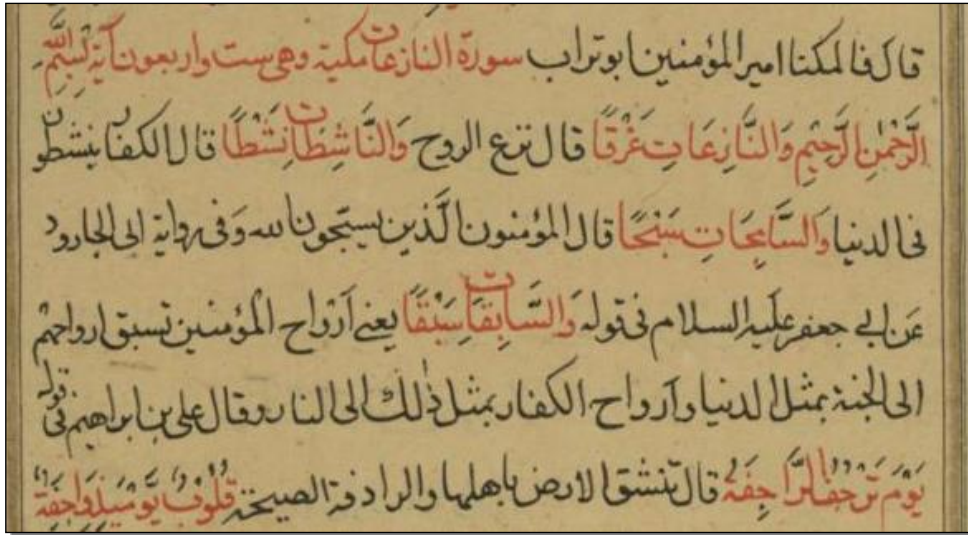 قال فالمكنا امير المؤمنين ابوتراب سورة النازعات مكية وهى ست واربعون آية بسم الله
الرَّحْمٰنِ الرَّحِيْمِ وَالنَّازِعَاتِ غَرْقًا قال نزع الروح وَالنَّاشِطَاتِ نَشْطًا قال الكفار ينشطون
فى الدنيا وَالسَّابِحَاتِ سَبْحًا قال المؤمنون الَّذين يسبّحون الله وَفى رواية ابى الجارود
عَن ابى جعفر عليه السلام فى قوله وَالسَّابِقَاتِ سَبْقًا يعنى اَرْواح الْمؤمنين تسبق ارواحهم
الى الجنة بمثل الدنيا واَرواح الكفار بمثل ذٰلك الى النار وقال على بن ابراهيم فى قوله
يَوْمَ تَرْجُفُ الرَّاجِفَةُ قال تنشق الارض باهلها والرادفة الصيحة قُلُوْبٌ يَّوْمَئِذٍ وَّاجِفَةٌ